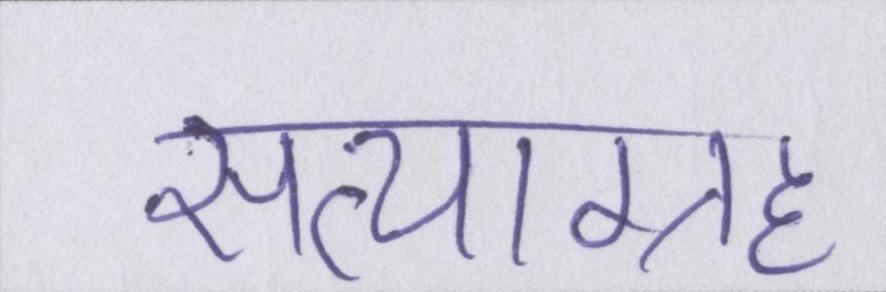 सत्याग्रह